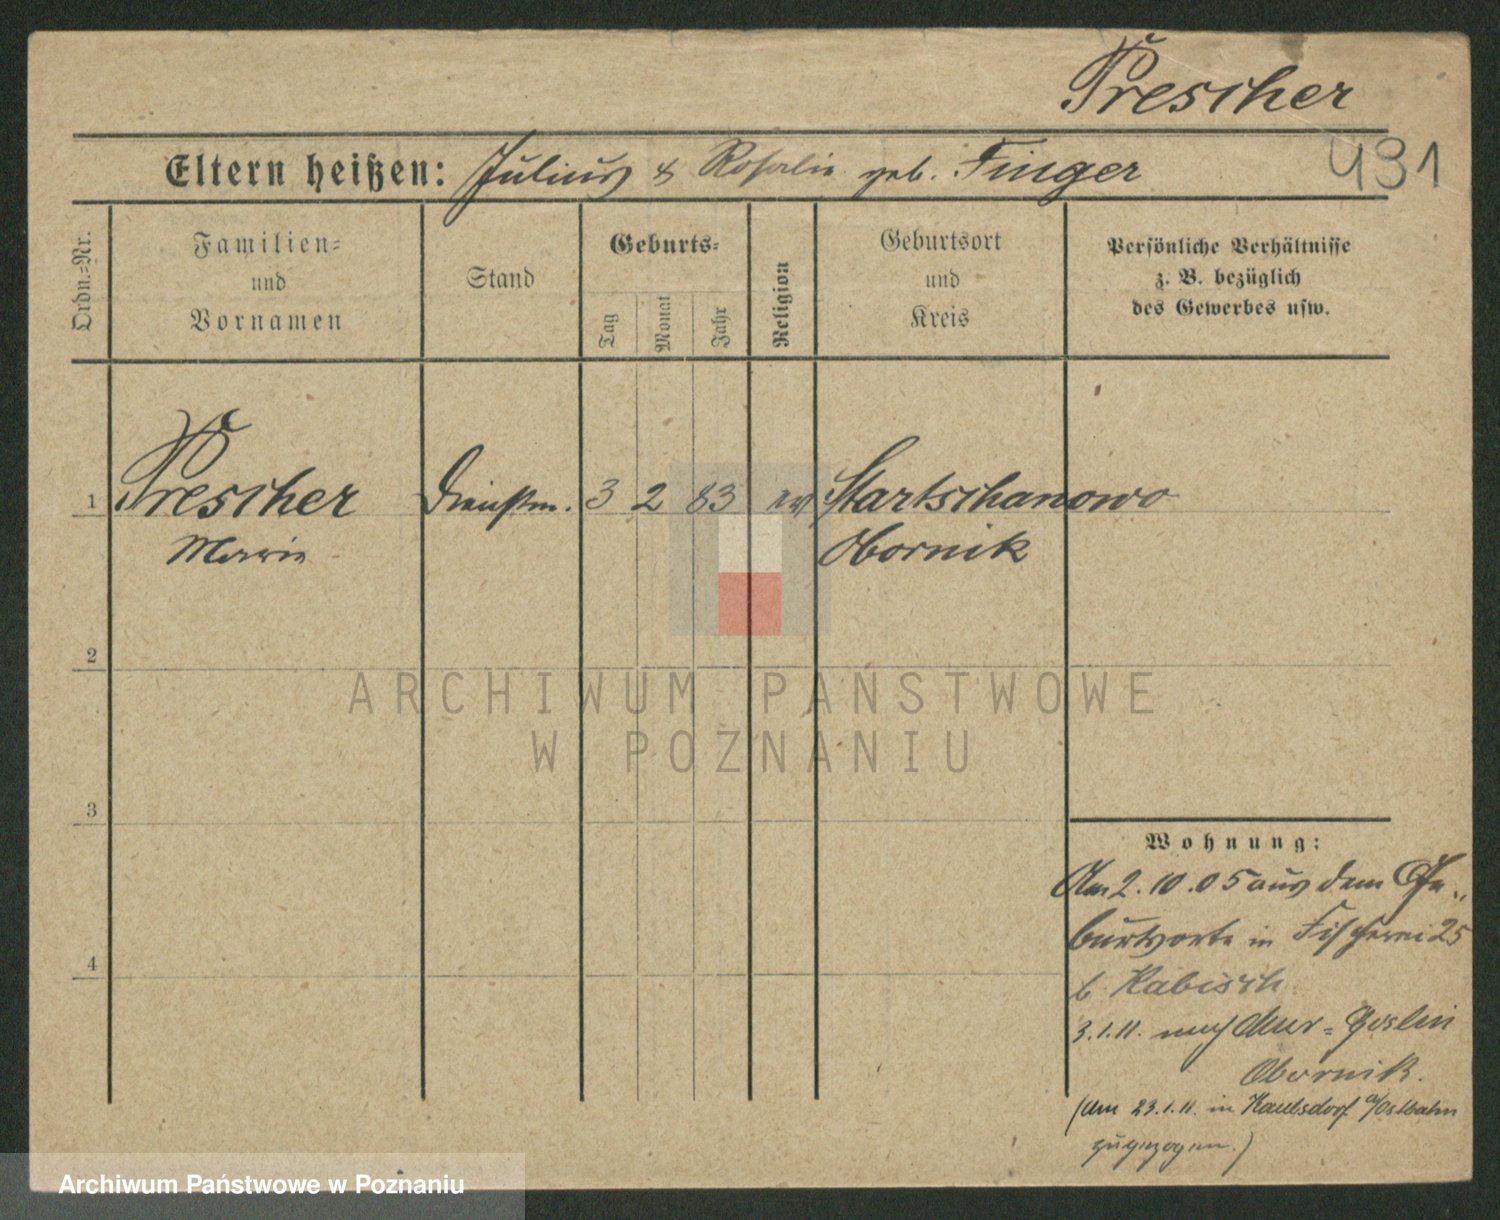 Prescher
Eltern heißen: Julius & Rosalie geb. Finger
431
Ordn.=Nr.
Familien=
und
Vornamen
Stand
Geburts=
Tag
Monat
Jahr
Religion
Geburtsort
und
Kreis
Persönliche Verhältnisse
z. B. bezüglich
des Gewerbes usw.
1 Prescher Dienstm. 3 2 83 ev Startschanowo
Marie Obornik
2
3
4
Wohnung:
Am 2.10.05 aus dem Ge„
burtsorte in Fischerei 25
b. Kabisch
3.1.11. nach Mur=Goslin
Obornik.
(Am 23.1.11. in Kaulsdorf a/Ostbahn
zugezogen.)
ARCHIWUM PAŃSTWOWE
W POZNANIU
Archiwum Państwowe w Poznaniu